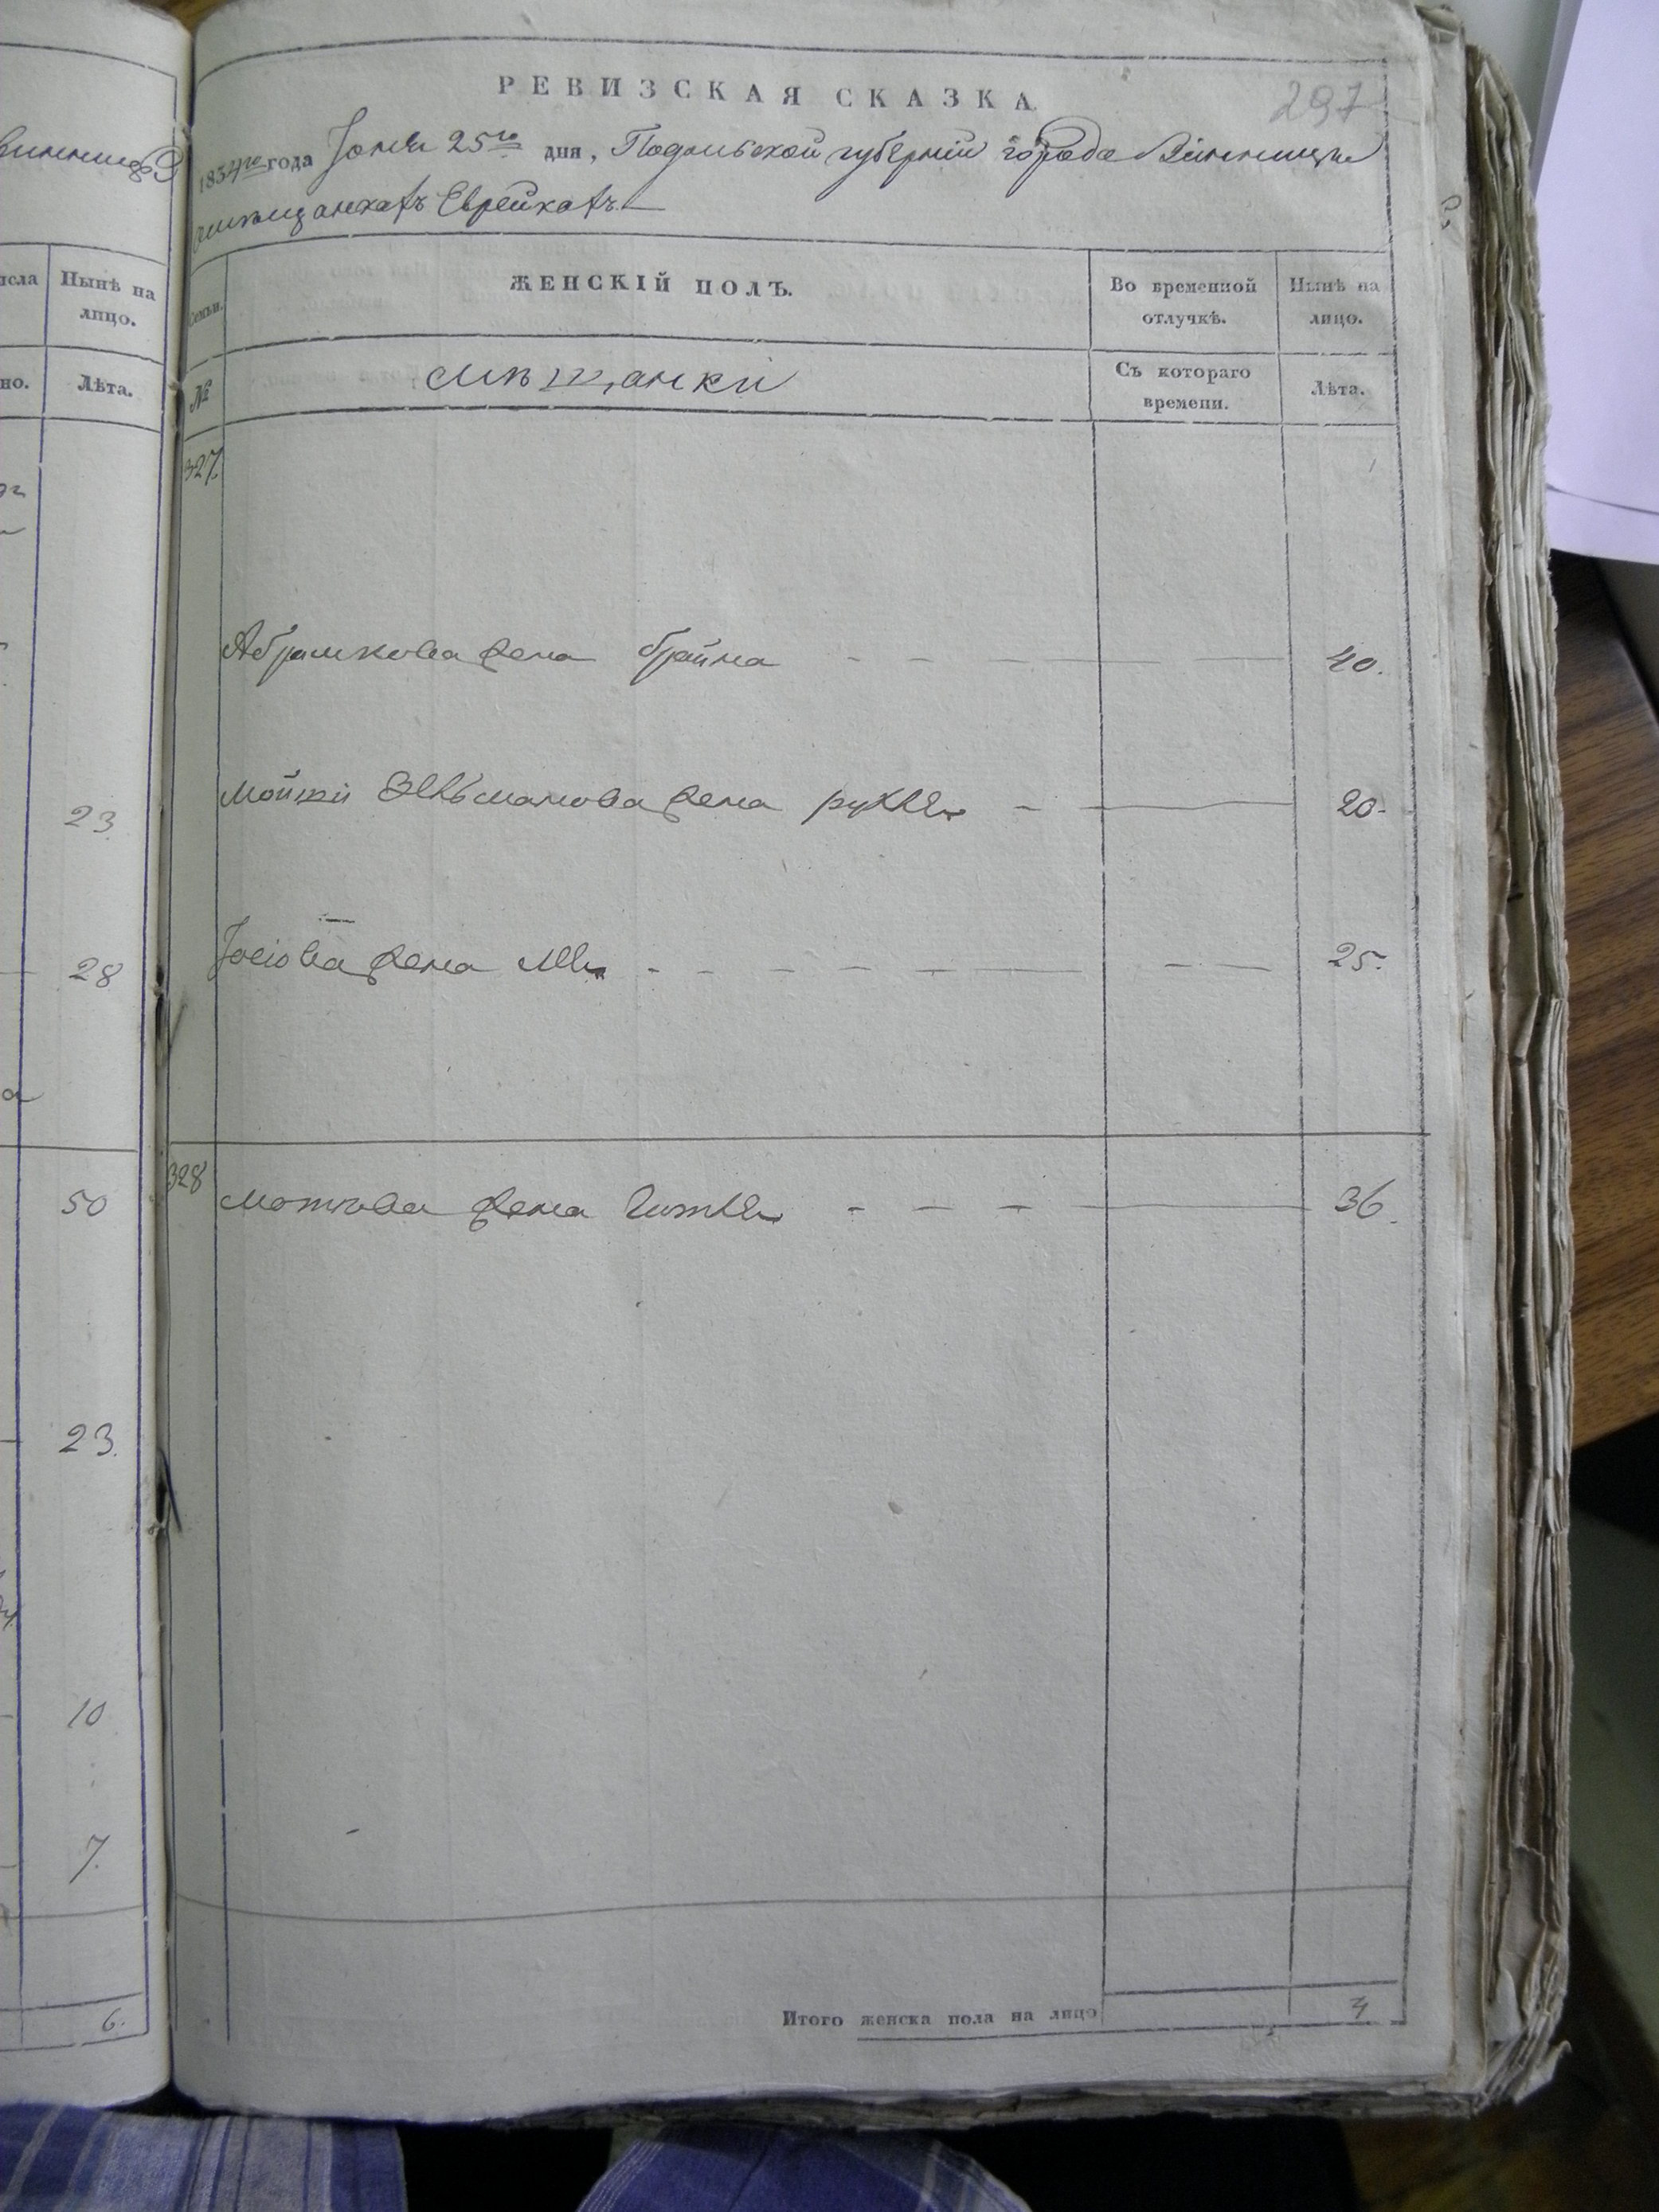 297
РЕВИЗСКАЯ СКАЗКА
1834го года Іюня 25го дня, Подольской губерніи города Винницы
мѣщанкахъ Еврейкахъ
Семьи. ЖЕНСКІЙ ПОЛЪ. Во временной отлучкѣ. Нынѣ на лицо.
№ Мѣщанки Съ котораго времени. Лѣта.
327.
Абрамкова жена Брайна 40.
Мошки Зельманова жена Рухля 20.
Іосіова жена 25.
328 Мотьова жена Гитля 36.
Итого женска пола на лицо 4
Нынѣ на лицо.
Лѣта.
23.
28
50
23.
10
7.
6.